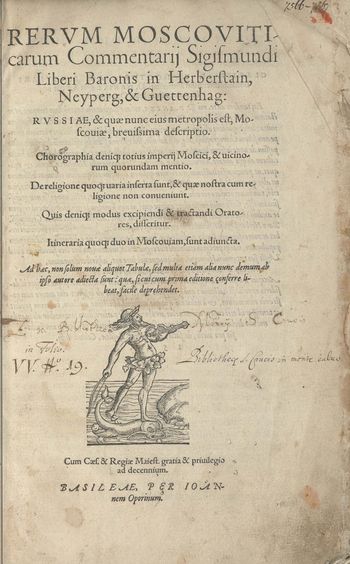 RERVM MOSCOVITI-
carum Commentarij Sigismundi
Liberi Baronis in Herberstain,
Neyperg, & Guettenhag:
RVSSIAE, & quæ nunc eius metropolis est, Mo-
scouiæ, breuissima descriptio.
Chorographia deniq; totius imperij Moscici, & uicino-
rum quorundam mentio.
De religione quoq; uaria inserta sunt, & quæ nostra cum re-
ligione non conueniunt.
Quis deniq; modus excipiendi & tractandi Orato-
res, disseritur.
Itineraria quoq; duo in Moscouiam, sunt adiuncta.
Ad hæc, non solum nouæ aliquot Tabulæ, sed multa etiam alia nunc demum ab
ipso autore adiecta sunt: quæ, si cui cum prima editione conferre li-
beat, facile deprehendet.
in folio.
VV. H. 19.
Cum Cæs. & Regiæ Maiest. gratia & priuilegio
ad decennium.
BASILEAE, PER IOAN-
nem Oporinum.